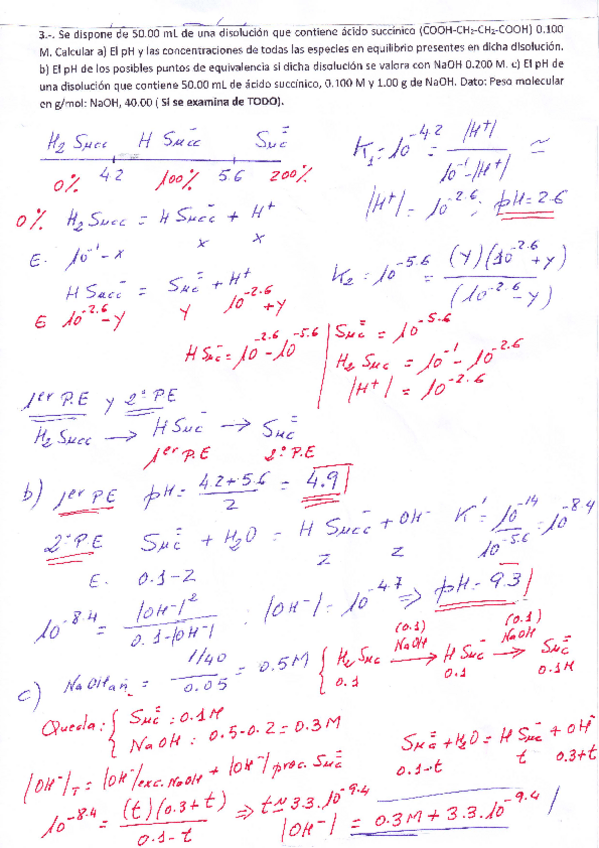 3.-. Se dispone de 50.00 mL de una disolución que contiene ácido succínico (COOH-CH₂-CH₂-COOH) 0.100
M. Calcular a) El pH y las concentraciones de todas las especies en equilibrio presentes en dicha disolución.
b) El pH de los posibles puntos de equivalencia si dicha disolución se valora con NaOH 0.200 M. c) El pH de
una disolución que contiene 50.00 mL de ácido succínico, 0.100 M y 1.00 g de NaOH. Dato: Peso molecular
en g/mol: NaOH, 40.00 ( Si se examina de TODO).
H₂Succ H Succ⁻ Suc⁼
0% 4.2 100% 5.6 200%
K₁ = 10^-4.2 = |H⁺| / 10^-1 - |H⁺| ≃
|H⁺| = 10^-2.6; pH = 2.6
0% H₂Succ = H Succ⁻ + H⁺
E. 10^-1 - x x x
H Succ⁻ = Suc⁼ + H⁺
E 10^-2.6 - y y 10^-2.6 + y
K₂ = 10^-5.6 = (y)(10^-2.6 + y) / (10^-2.6 - y)
H Suc⁻ = 10^-2.6 - 10^-5.6
Suc⁼ = 10^-5.6
H₂ Suc = 10^-1 - 10^-2.6
|H⁺| = 10^-2.6
1er P.E y 2º PE
H₂Succ → H Suc⁻ → Suc⁼
1er P.E 2º P.E
b) 1er PE pH = 4.2 + 5.6 / 2 = 4.9
2º P.E Suc⁼ + H₂O = H Succ⁻ + OH⁻ K' = 10^-14 / 10^-5.6 = 10^-8.4
E. 0.1-z z z
10^-8.4 = |OH⁻|² / 0.1-|OH⁻| ; |OH⁻| = 10^-4.7 ⇒ pH = 9.3
c) NaOH añ. = 1/40 / 0.05 = 0.5M
H₂ Suc (0.1) NaOH → H Suc⁻ (0.1) NaOH → Suc⁼
0.1 0.1 0.1M
Queda: { Suc⁼ : 0.1M
NaOH : 0.5-0.2 = 0.3M
Suc⁼ + H₂O = H Suc⁻ + OH⁻
0.1-t t 0.3+t
|OH⁻|T = |OH⁻| exc. NaOH + |OH⁻| proc. Suc⁼
10^-8.4 = (t)(0.3+t) / 0.1-t ⇒ t ≃ 3.3.10^-9.4
|OH⁻| = 0.3M + 3.3.10^-9.4